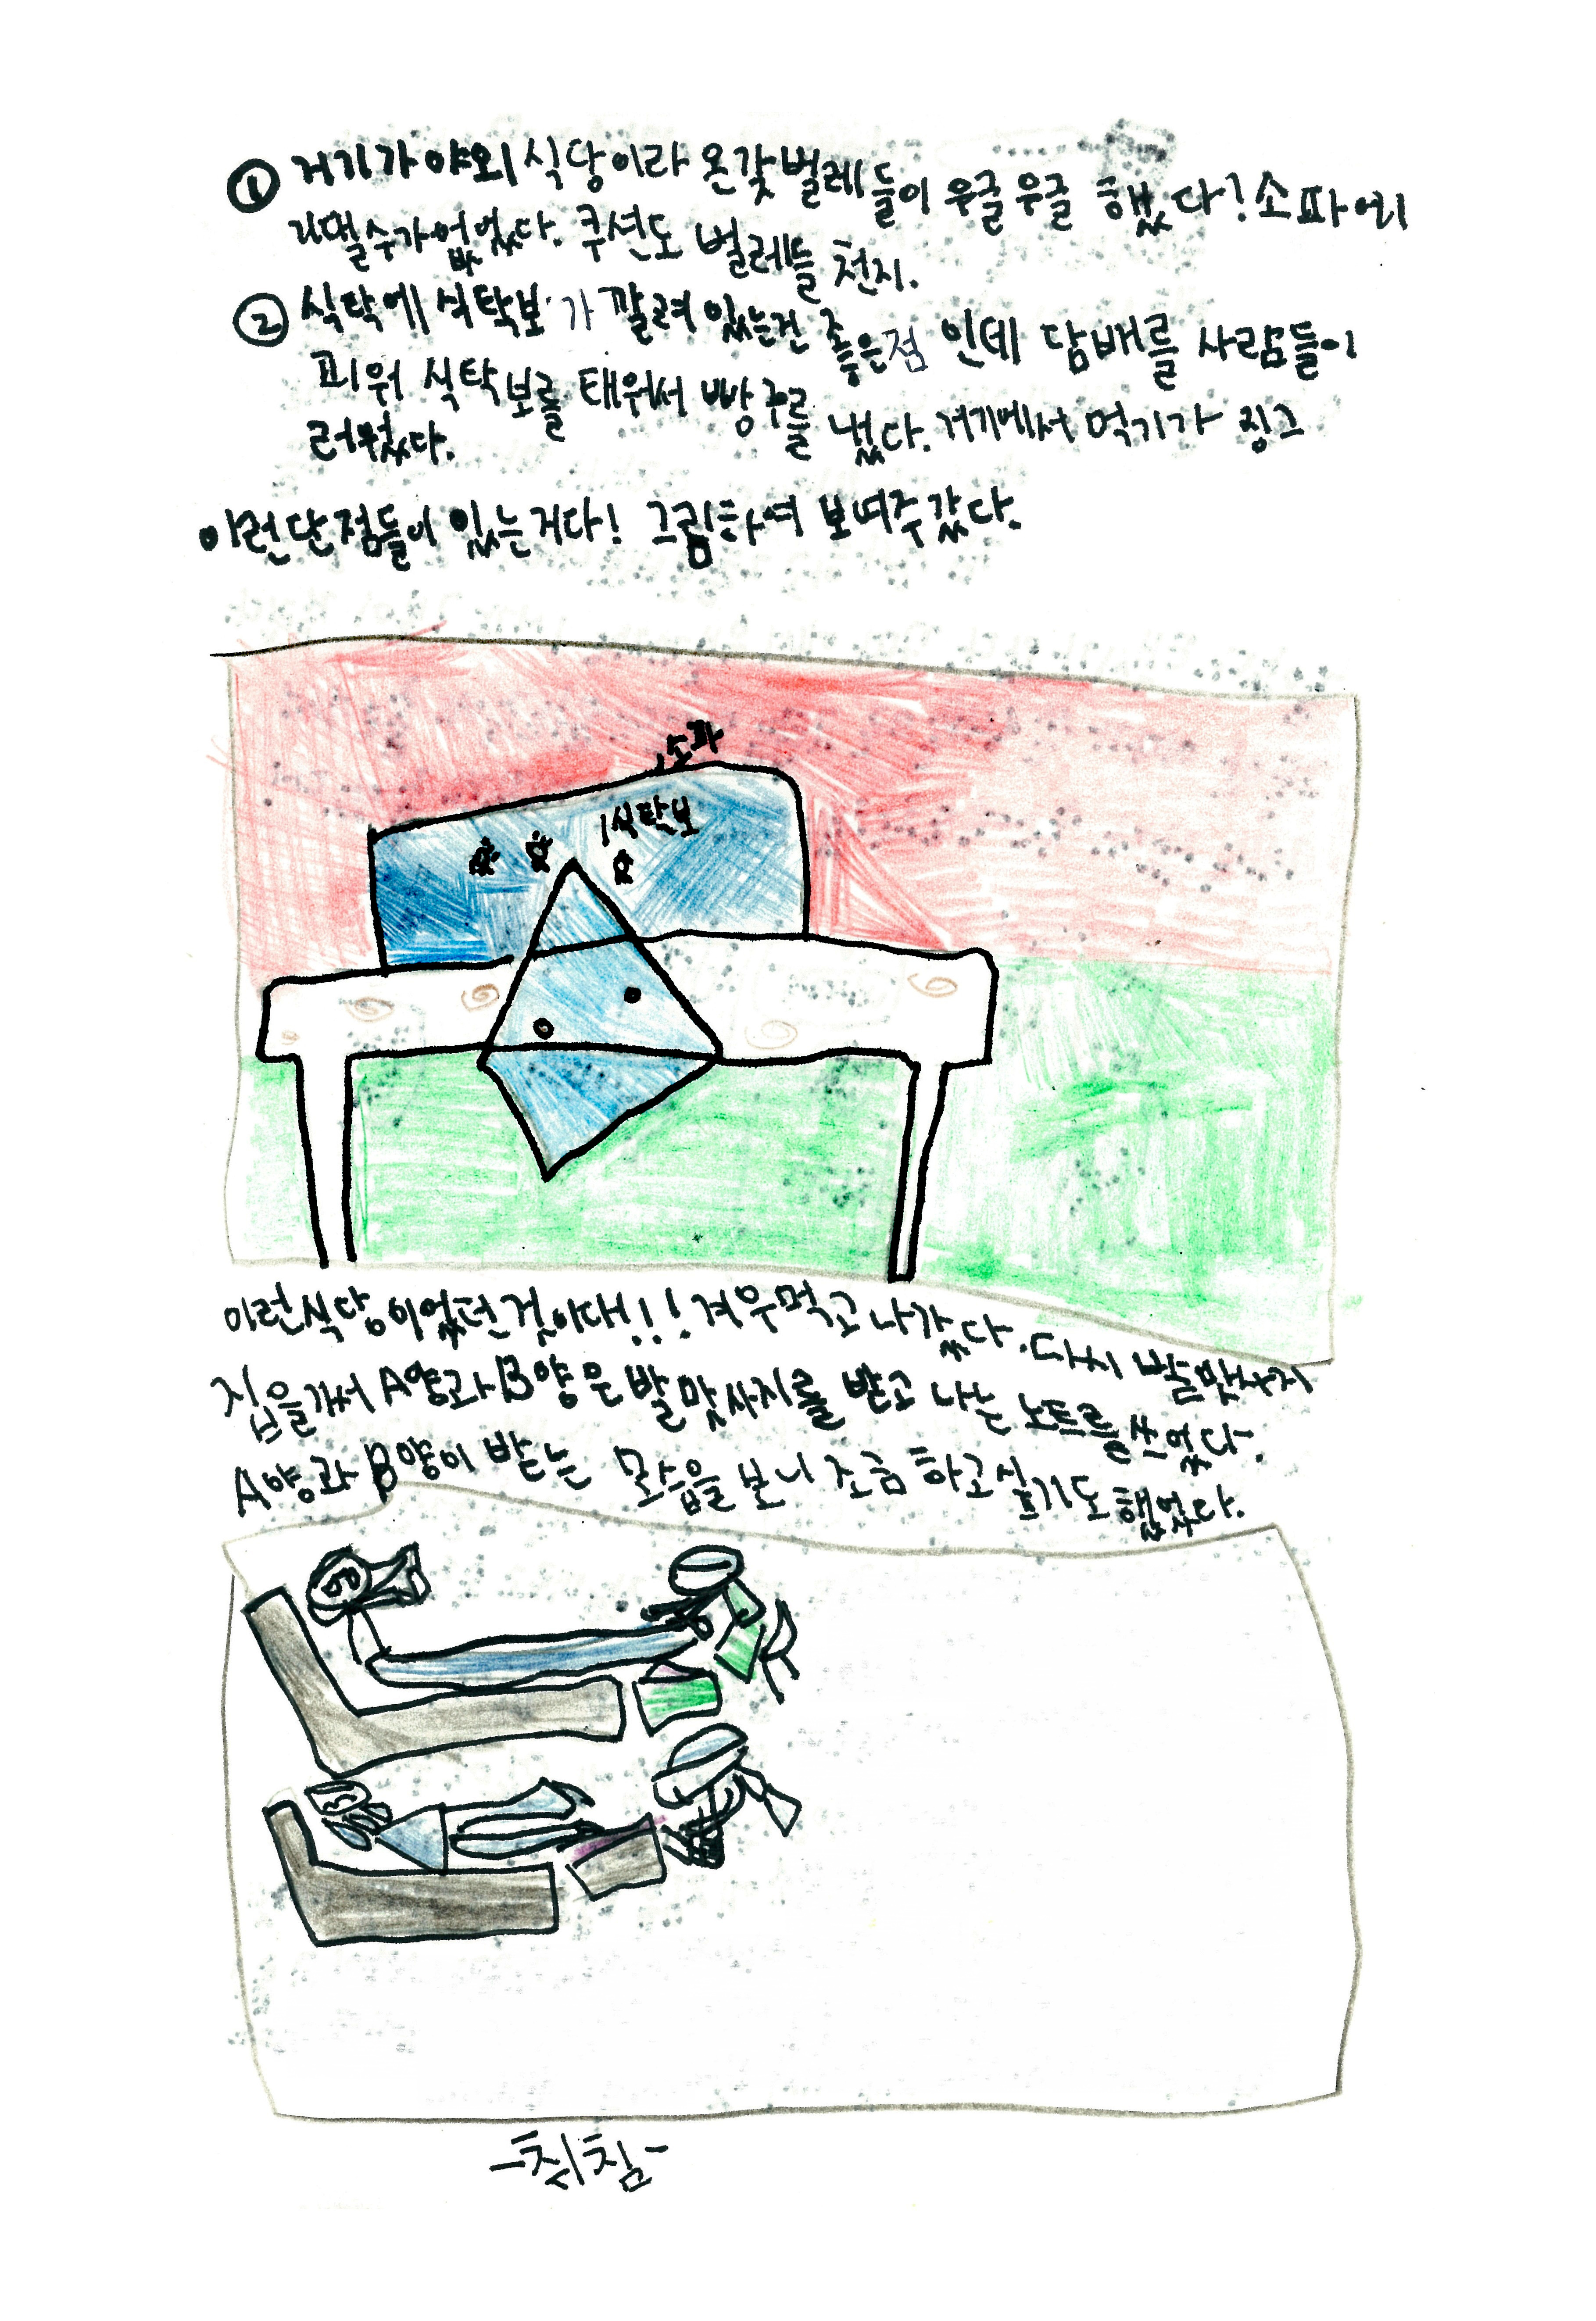 ① 거기가 야외 식당이라 온갖 벌레들이 우글우글 했다! 소파에
기댈수가 없었다. 쿠션도 벌레들 천지.
② 식탁에 식탁보가 깔려 있는건 좋은점 인데 담배를 사람들이
피워 식탁보를 태워서 빵꾸를 냈다. 거기에서 먹기가 징그
러웠다.
이런단점들이 있는거다! 그림하여 보여주갔다.
소파
식탁보
이런식당이었던 것이다!!! 겨우먹고 나갔다. 다시 발맛사지
집을가서 A양과 B양은 발맛사지를 받고 나는 노트를 쓰었다.
A양과 B양이 받는 모습을 보니 조금 하고싶기도 했었다.
-취침-